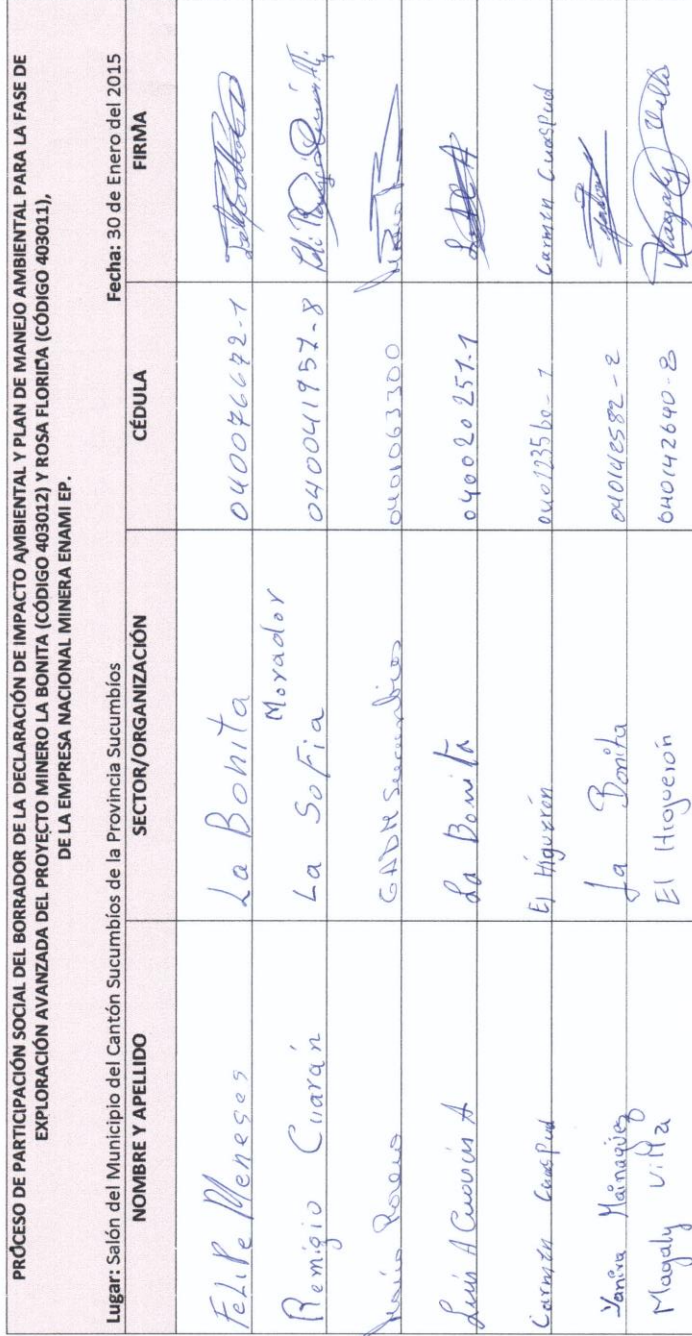 PROCESO DE PARTICIPACIÓN SOCIAL DEL BORRADOR DE LA DECLARACIÓN DE IMPACTO AMBIENTAL Y PLAN DE MANEJO AMBIENTAL PARA LA FASE DE
EXPLORACIÓN AVANZADA DEL PROYECTO MINERO LA BONITA (CÓDIGO 403012) Y ROSA FLORIDA (CÓDIGO 403011),
DE LA EMPRESA NACIONAL MINERA ENAMI EP.
Lugar: Salón del Municipio del Cantón Sucumbíos de la Provincia Sucumbíos Fecha: 30 de Enero del 2015
NOMBRE Y APELLIDO SECTOR/ORGANIZACIÓN CÉDULA FIRMA
FeLiPe Meneses La Bonita 040076672-1
Remigio Cuarán La Sofia Morador 040041957-8
GADM Sucumbios 0401063300
Luis A Cuarán A La Bonita 040020251-1
Carmen Cuaspud El Higuerón Carmen Cuaspud
Yanira Mainaguez La Bonita
Magaly Villa El Higuerón 040142640-8